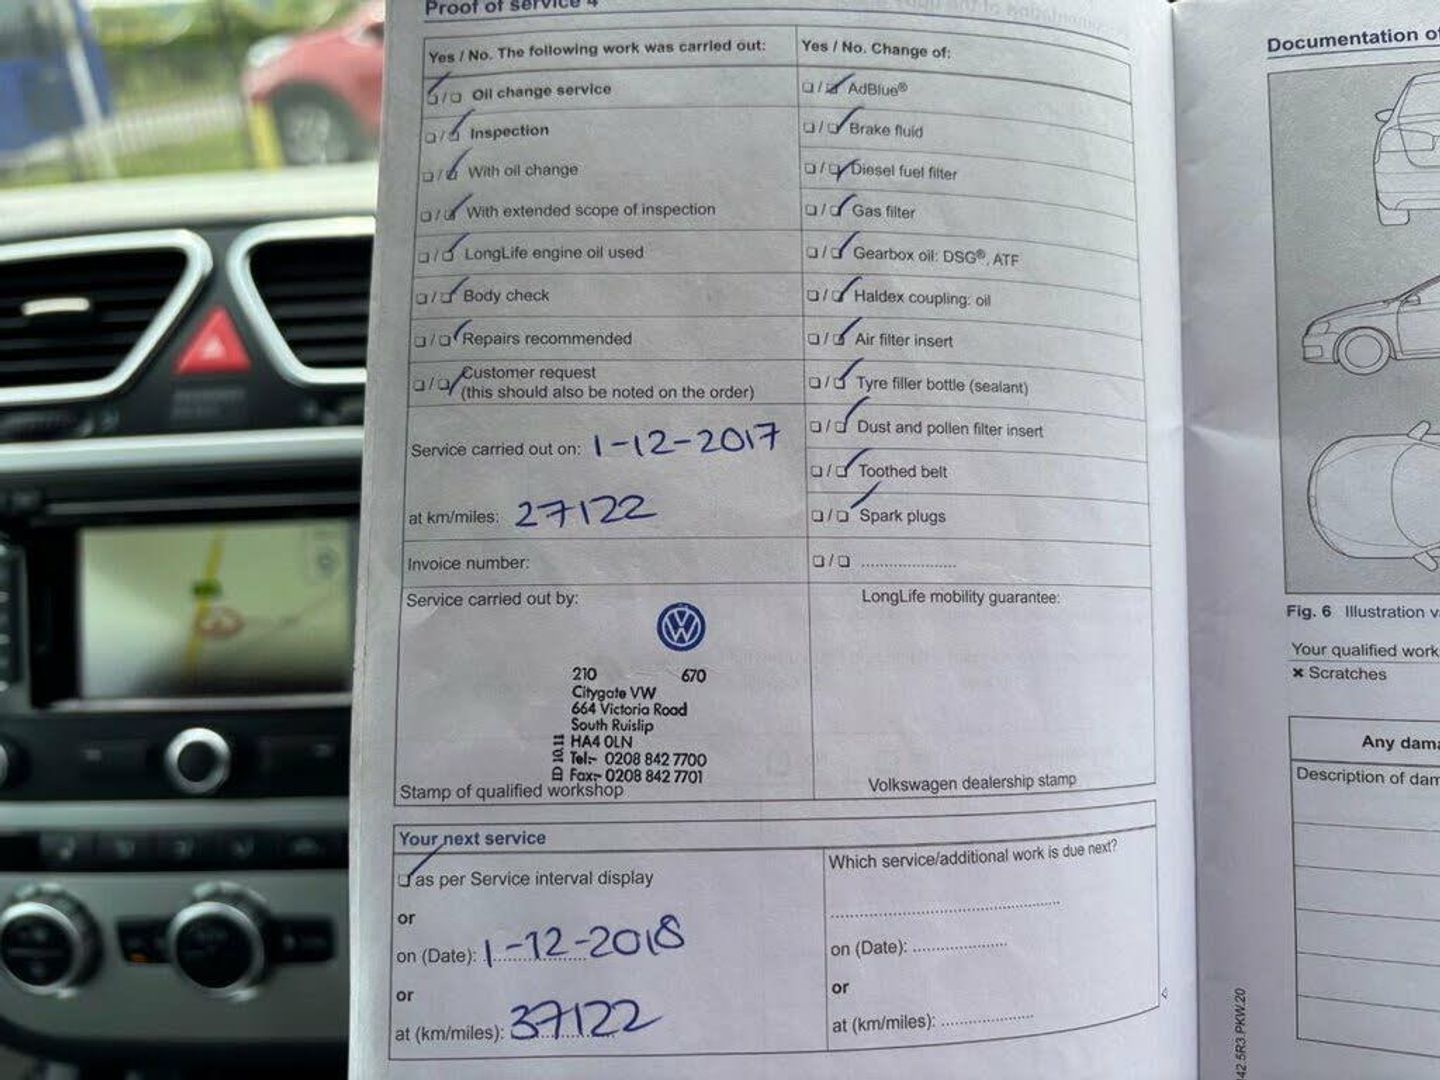 Proof of service 4
Yes / No. The following work was carried out:
Oil change service
Inspection
With oil change
With extended scope of inspection
LongLife engine oil used
Body check
Repairs recommended
Customer request
(this should also be noted on the order)
Service carried out on: 1-12-2017
at km/miles: 27122
Invoice number:
Service carried out by:
210 670
Citygate VW
664 Victoria Road
South Ruislip
HA4 0LN
Tel:- 0208 842 7700
Fax:- 0208 842 7701
ID 10.11
Stamp of qualified workshop
Yes / No. Change of:
AdBlue®
Brake fluid
Diesel fuel filter
Gas filter
Gearbox oil: DSG®, ATF
Haldex coupling: oil
Air filter insert
Tyre filler bottle (sealant)
Dust and pollen filter insert
Toothed belt
Spark plugs
LongLife mobility guarantee:
Volkswagen dealership stamp
Your next service
as per Service interval display
or
on (Date): 1-12-2018
or
at (km/miles): 37122
Which service/additional work is due next?
on (Date):
or
at (km/miles):
Documentation of
Fig. 6 Illustration v
Your qualified work
× Scratches
Any dama
Description of dam
42.5R3.PKW.20